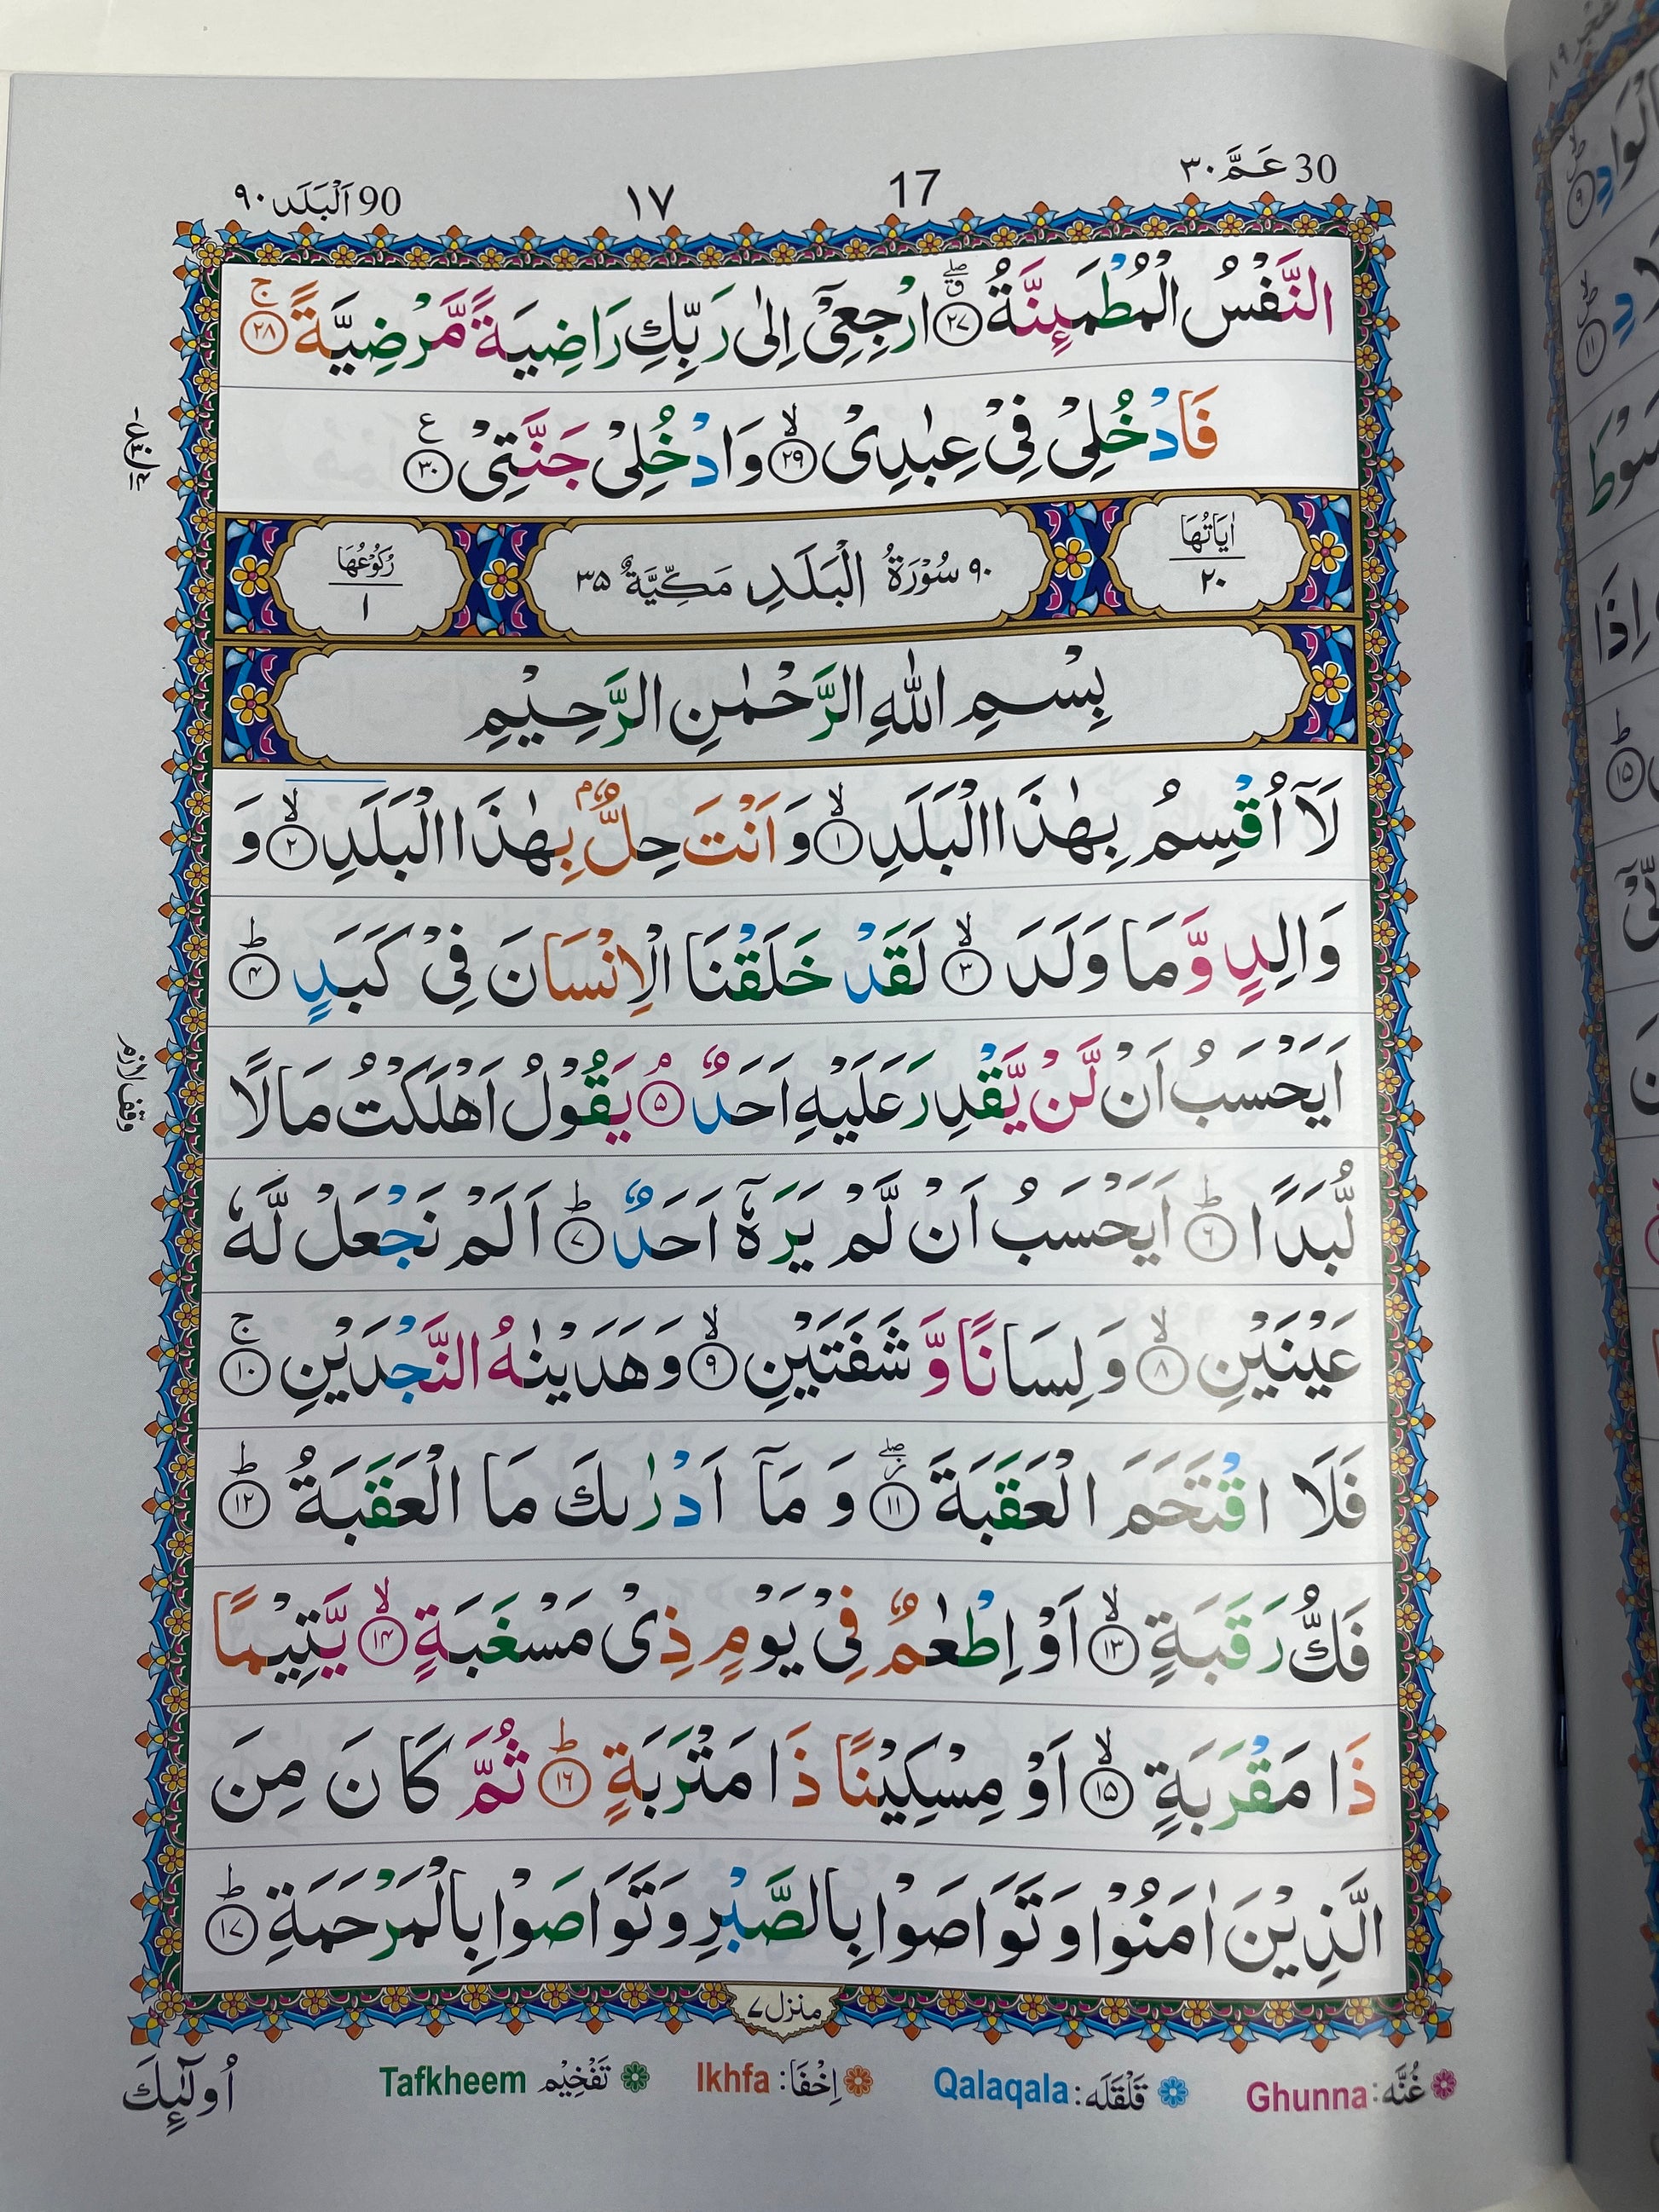 30 عَمَّ ٣٠ 17 ١٧ 90 اَلْبَلَد ٩٠
النَّفْسُ الْمُطْمَىِٕنَّةُ ﴿٢٧﴾ ارْجِعِیْۤ اِلٰی رَبِّكِ رَاضِیَةً مَّرْضِیَّةً ۚ﴿٢٨﴾
فَادْخُلِیْ فِیْ عِبٰدِیْ ۙ﴿٢٩﴾ وَادْخُلِیْ جَنَّتِیْ ﴿٣٠﴾ ع
اٰیَاتُهَا ٢٠ ٩٠ سُوْرَةُ الْبَلَدِ مَكِّیَّةٌ ٣٥ رُكُوْعُهَا ١
بِسْمِ اللّٰهِ الرَّحْمٰنِ الرَّحِیْمِ
لَاۤ اُقْسِمُ بِهٰذَا الْبَلَدِ ۙ﴿١﴾ وَ اَنْتَ حِلٌّۢ بِهٰذَا الْبَلَدِ ۙ﴿٢﴾ وَ
وَالِدٍ وَّ مَا وَلَدَ ۙ﴿٣﴾ لَقَدْ خَلَقْنَا الْاِنْسَانَ فِیْ كَبَدٍ ؕ﴿٤﴾
اَیَحْسَبُ اَنْ لَّنْ یَّقْدِرَ عَلَیْهِ اَحَدٌ ۘ﴿٥﴾ یَقُوْلُ اَهْلَكْتُ مَالًا
وقف لازم
لُّبَدًا ؕ﴿٦﴾ اَیَحْسَبُ اَنْ لَّمْ یَرَهٗۤ اَحَدٌ ؕ﴿٧﴾ اَلَمْ نَجْعَلْ لَّهٗ
عَیْنَیْنِ ۙ﴿٨﴾ وَ لِسَانًا وَّ شَفَتَیْنِ ۙ﴿٩﴾ وَ هَدَیْنٰهُ النَّجْدَیْنِ ۚ﴿١٠﴾
فَلَا اقْتَحَمَ الْعَقَبَةَ ﴿١١﴾ وَ مَاۤ اَدْرٰىكَ مَا الْعَقَبَةُ ؕ﴿١٢﴾
فَكُّ رَقَبَةٍ ۙ﴿١٣﴾ اَوْ اِطْعٰمٌ فِیْ یَوْمٍ ذِیْ مَسْغَبَةٍ ۙ﴿١٤﴾ یَّتِیْمًا
ذَا مَقْرَبَةٍ ۙ﴿١٥﴾ اَوْ مِسْكِیْنًا ذَا مَتْرَبَةٍ ؕ﴿١٦﴾ ثُمَّ كَانَ مِنَ
الَّذِیْنَ اٰمَنُوْا وَ تَوَاصَوْا بِالصَّبْرِ وَ تَوَاصَوْا بِالْمَرْحَمَةِ ؕ﴿١٧﴾
منزل ٧
غُنَّه: Ghunna قَلْقَلَه: Qalaqala اِخْفَا: Ikhfa تَفْخِیْم Tafkheem
اُولٰٓىِٕكَ